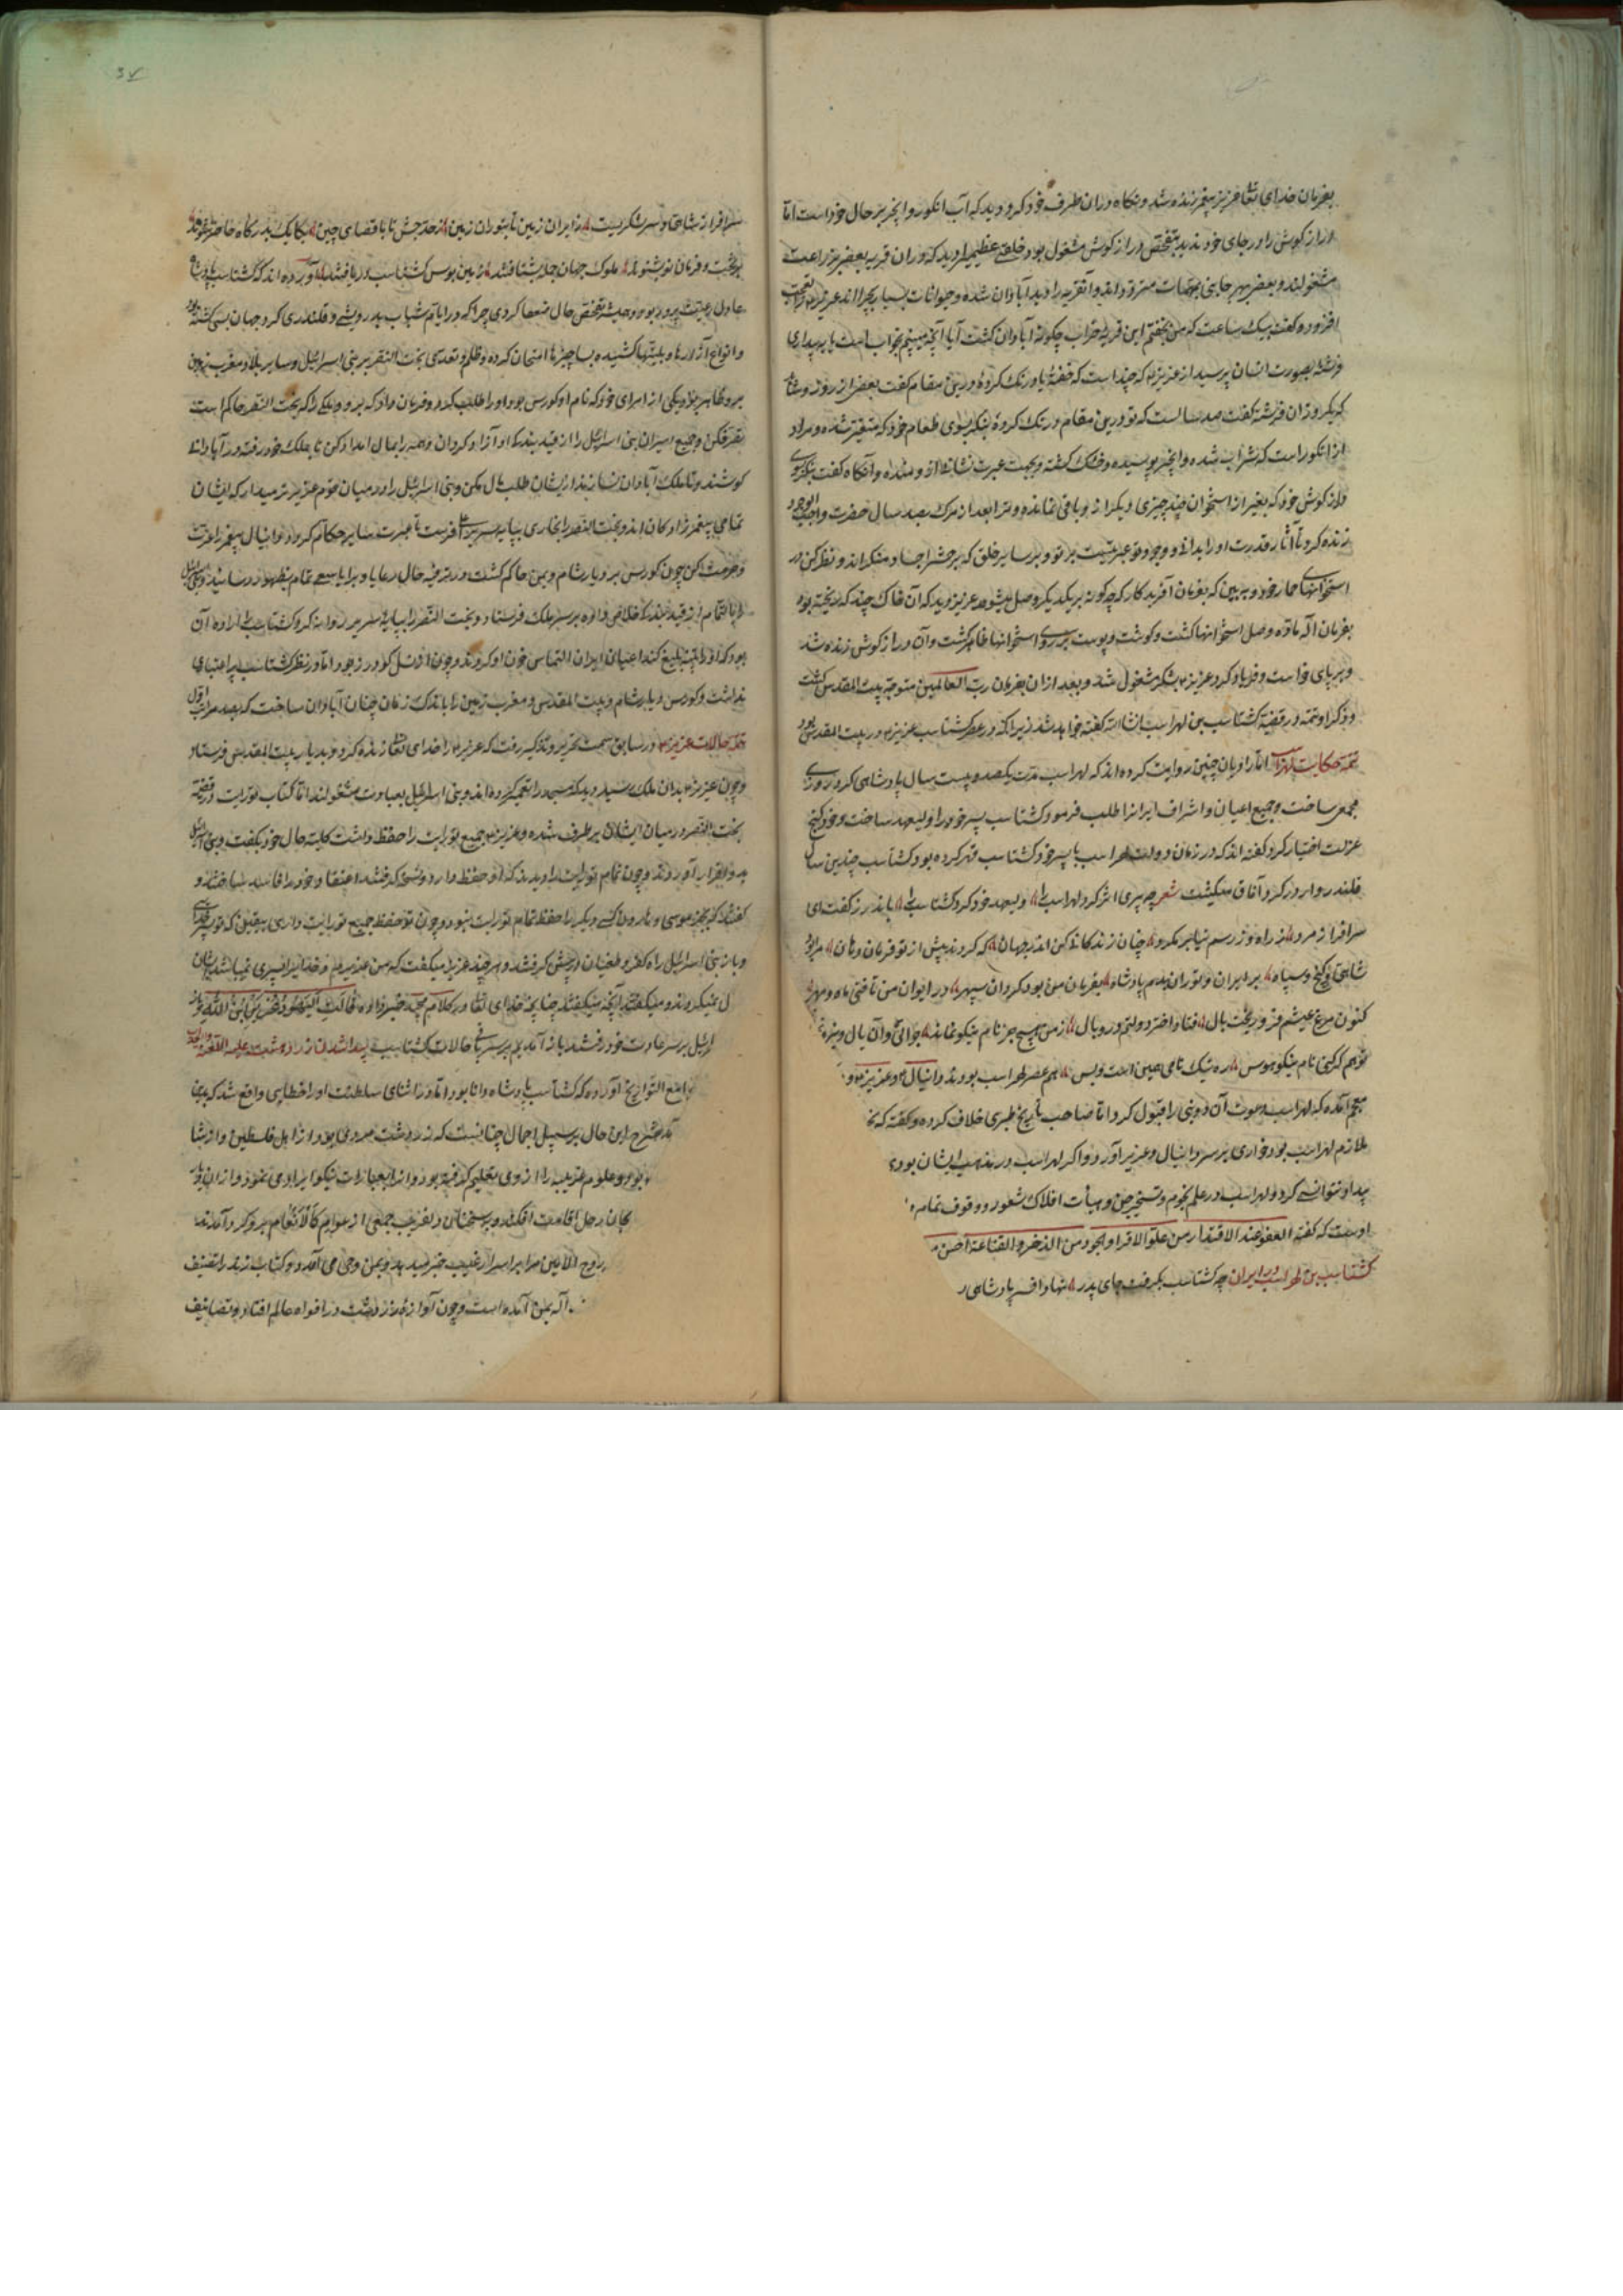 بفرمان خدای تعا عزیز پیغمبر زنده شد و نکاه دران ظرف خود کرد و دید که آب انکور و انجیر بر حال خود است اما
دراز کوش را در جای خود ندید بتفحص دراز کوش مشغول بود خلقی عظیم را دید که دران قریه بعضی بزراعت
مشغولند و بعضی بهر جانبی بمهمات متردد اند و آنقریه را دید آبادان شده و حیوانات بسیار بچرا اند عزیر را تعجب
افزود و کفت بیک ساعت که من بخفتم این قریه خراب چکونه آبادان کشت آیا آنچه میبینم بخواب است یا به بیداری
فرشته بصورت انسان پرسید از عزیز که چند است که خفتهٔ یا درنک کردهٔ درین مقام کفت بعضی از روز و شاید
که یکروز آن فرشته کفت صد سالست که تو درین مقام درنک کردهٔ بنکر بسوی طعام خود که متغیر نشده و مراد
از انکور است که شراب شده و انجیر پوسیده و خشک کشته و بجهت عبرت نشانها از و مانده و آنکاه کفت بنکر بسوی
دراز کوش خود که بغیر از استخوان چند چیزی دیکر از و باقی نمانده و ترا بعد از مرک بصد سال حضرت واجب الوجود
زنده کرد تا آثار قدرت او را بدانی و وجود تو عبرتیست بر تو و بر سایر خلق که بر حشر اجساد منکر اند و نظر کن در
استخوانهای حمار خود و به بین که بفرمان آفریدکار که چکونه بر یکدیکر وصل میشود عزیز دید که آن خاک چند که ریخته بود
بفرمان اله ماده وصل استخوانها کشت و کوشت و پوست بر روی استخوانها ظاهر کشت و آن دراز کوش زنده شد
و بر پای خواست و فریاد کرد عزیز بشکر مشغول شد و بعد ازان بفرمان رب العالمین متوجه بیت المقدس کشت
و ذکر او تتمه در قضیهٔ کشتاسب بن لهراسب انشا الله کفته خواهد شد زیرا که در عصر کشتاسب عزیز در بیت المقدس بود
تتمه حکایت لهراسب اما راویان چنین روایت کرده اند که لهراسب مدت یکصد و بیست سال پادشاهی کرد روزی
مجمعی ساخت و جمیع اعیان و اشراف ایرانرا طلب فرمود کشتاسب پسر خود را ولیعهد ساخت و خود کنج
عزلت اختیار کرد کفته اند که در زمان دولت لهراسب با پسر خود کشتاسب قهر کرده بود کشتاسب چندین سال
قلندر وار در کرد آفاق میکشت شعر چه پیری اثر کرد لهراسب را ولیعهد خود کرد کشتاسب را باندرز کفت ای
سرافراز مرد ز راه و ز رسم نیا بر مکرد چنان زندکانی کن اندر جهان که کردند پیش از تو فرمان دهان مرا بود
شاهی و کنج و سپاه بر ایران و توران بدم پادشاه بفرمان من بود کردان سپهر در ایوان من تافتی ماه و مهر
کنون مرغ عیشم فرو ریخت بال فتاد اختر دولتم در وبال ز من هیچ جز نام نیکو نماند جوانی و آن یال و نیرو
تو هم کر کنی نام نیکو هوس ره نیک نامی همین است و بس هم عصر لهراسب بودند دانیال و عزیز و
معجم آمده که لهراسب دعوت آن دو نبی را قبول کرد اما صاحب تاریخ طبری خلاف کرده و کفته که
ملازم لهراسب بود خواری بر سر دانیال و عزیر آورد و اکر لهراسب در مذهب ایشان بودی
بیداد نتوانستی کرد و لهراسب در علم نجوم و تسخیر جن و هیأت افلاک شعور و وقوف تمام
اوست که کفته العفو عند الاقتدار من علو الاقدار و الجود من الذخر و القناعة احسن
کشتاسب بن لهراسب در ایران چه کشتاسب بکرفت جای پدر نهاد افسر پادشاهی
سرافراز شاهان و سر لشکریست ز ایران زمین تا بتوران زمین ز حد حبش تا باقصای چین یکایک بدرکاه حاضر شوند
بوقت و فرمان نوشتند ملوک جهان جمله بشتافتند زمین بوس کشتاسب دریافتند آورده اند که کشتاسب پادشاه
عادل رعیت پرور بود و همیشه تفحص حال ضعفا کردی چرا که در ایام شباب بدرویشی و قلندری کرد جهان بسی کشته بود
و انواع آزارها و بلیتها کشیده بسا چیزها امتحان کرده و ظلم و تعدی بخت النصر بر بنی اسرائیل و سایر بلاد مغرب زمین
برو ظاهر بود یکی از امرای خود که نام او کورس بود او را طلب کرد و فرمان داد که برو و ملکی را که بخت النصر حاکم است
تصرف کن و جمیع اسیران بنی اسرائیل را از قید بندکی او آزاد کردان و همه را بمال امداد کن تا بملک خود رفته در آبادانی
کوشند و تا ملک آبادان نسازند ازیشان طلب مال مکن و بنی اسرائیل را در میان قوم عزیزتر میدار که ایشان
تمامی پیغمبر زادکان اند و بخت النصر را بخواری بپایه سریر ما فرست تا عبرت سایر حکام کردد و دانیال پیغمبر را عزت
و حرمت کن چون کورس بر دیار شام و یمن حاکم کشت و در ترفیه حال رعایا و برایا سعی تمام بظهور رسانید و بنی اسرائیل
را بالتمام از قید بند خلاصی داده بر سر ملک فرستاد و بخت النصر را بپایه سریر روانه کرد کشتاسب را اراده آن
بود که او را تنبیه بلیغ کند اعیان ایران التماس خون او کردند و چون از نسل کودرز بود اما در نظر کشتاسب پر اعتباری
نداشت و کورس دیار شام و بیت المقدس و مغرب زمین را باندک زمان چنان آبادان ساخت که بصد مراتب از اول
تتمه حالات عزیز در سابق سمت تحریر و تذکیر رفت که عزیر را خدای تعا زنده کرد و بدیار بیت المقدس فرستاد
و چون عزیز بدان ملک رسید دید که مسجد را تعمیر کرده اند و بنی اسرائیل بعبادت مشغولند اما کتاب تورات در قضیهٔ
بخت النصر در میان ایشان بر طرف شده و عزیز جمیع تورات را حفظ داشت کلیه حال خود بکفت و بنی اسرائیل
بدو اقرار آوردند و چون تمام تورات را دیدند که او حفظ دارد و نسخه کرفتند اعتقاد خود را فاسد ساختند و
کفتند که بجز موسی و هارون کسی دیکر را حفظ تمام تورات نبود و چون تو حفظ جمیع تورات داری بیقین که تو پسر خدای
و باز بنی اسرائیل راه کفر و طغیان در پیش کرفتند و هر چند عزیز میکفت که من عبد ویم و خدا را پسری نمی باشد ایشان
ل نمیکردند و میکفتند آنچه میکفتند چنانچه خدای تعا در کلام مجید خبر داده قالت الیهود عزیر ابن الله و باز
ائیل بر سر عادت خود رفتند باز آمدیم بر سر حالات کشتاسب پیدا شدن زرادشت علیه اللعنه
جامع التواریخ آورده که کشتاسب پادشاه دانا بود اما در اثنای سلطنت او را خطایی واقع شد که بدین
آمد شرح این حال بر سبیل اجمال چنانست که زردشت مردی بود از اهل فلسطین و از شا
بود و علوم غریبه را از وی تعلیم کرفته بود و از او بعبارات نیکو ایراد می نمود و ازان
یجان رحل اقامت افکند و بر سخنان دلفریب جمعی از عوام کالانعام برو کرد آمدند
روح الامین مرا بر اسرار غیب خبر میدهد و بمن وحی می آمد و کتاب زند را تصنیف
اله بمن آمده است و چون آوازهٔ زردشت در افواه عالم افتاد و تصانیف